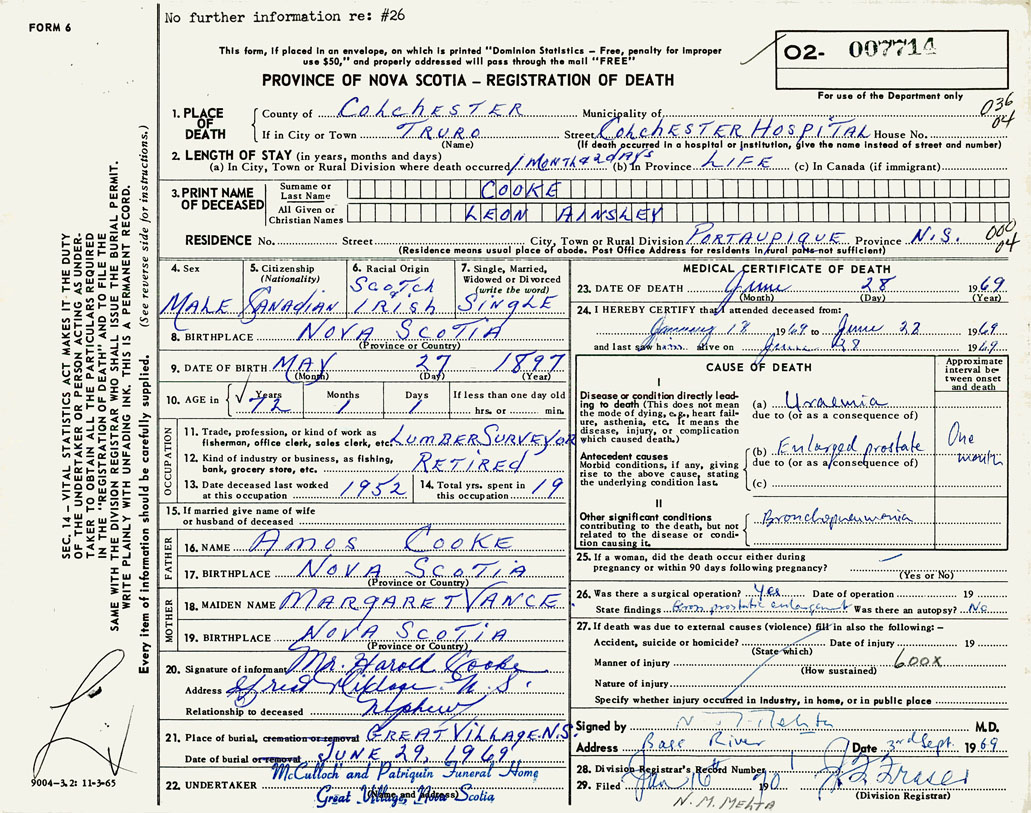 FORM 6
No further information re: #26
This form, if placed in an envelope, on which is printed "Dominion Statistics – Free, penalty for improper
use $50," and properly addressed will pass through the mail "FREE"
PROVINCE OF NOVA SCOTIA – REGISTRATION OF DEATH
O2- 007714
For use of the Department only
036
04
1. PLACE OF DEATH
County of COLCHESTER Municipality of
If in City or Town TRURO Street COLCHESTER HOSPITAL House No.
(Name) (If death occurred in a hospital or institution, give the name instead of street and number)
2. LENGTH OF STAY (in years, months and days)
(a) In City, Town or Rural Division where death occurred 1 MONTH & 2 days (b) In Province LIFE (c) In Canada (if immigrant)
3. PRINT NAME OF DECEASED
Surname or Last Name COOKE
All Given or Christian Names LEON AINSLEY
RESIDENCE No. Street City, Town or Rural Division PORTAUPIQUE Province N.S.
000
04
(Residence means usual place of abode. Post Office Address for residents in rural parts not sufficient)
4. Sex
MALE
5. Citizenship
(Nationality)
CANADIAN
6. Racial Origin
SCOTCH
IRISH
7. Single, Married,
Widowed or Divorced
(write the word)
SINGLE
8. BIRTHPLACE NOVA SCOTIA
(Province or Country)
9. DATE OF BIRTH MAY 27 1897
(Month) (Day) (Year)
10. AGE in Years Months Days If less than one day old
72 1 1 hrs. or min.
OCCUPATION
11. Trade, profession, or kind of work as
fisherman, office clerk, sales clerk, etc. LUMBER SURVEYOR
12. Kind of industry or business, as fishing,
bank, grocery store, etc. RETIRED
13. Date deceased last worked
at this occupation 1952
14. Total yrs. spent in
this occupation 19
15. If married give name of wife
or husband of deceased
FATHER
16. NAME AMOS COOKE
17. BIRTHPLACE NOVA SCOTIA
(Province or Country)
MOTHER
18. MAIDEN NAME MARGARET VANCE
19. BIRTHPLACE NOVA SCOTIA
(Province or Country)
20. Signature of informant Mr. Harold Cooke
Address Great Village N.S.
Relationship to deceased Nephew
21. Place of burial, cremation or removal GREAT VILLAGE N.S.
Date of burial or removal JUNE 29, 1969
22. UNDERTAKER McCulloch and Patriquin Funeral Home
Great Village, Nova Scotia
(Name and address)
MEDICAL CERTIFICATE OF DEATH
23. DATE OF DEATH June 28 1969
(Month) (Day) (Year)
24. I HEREBY CERTIFY that I attended deceased from:
January 18 1969 to June 28 1969
and last saw him alive on June 28 1969
CAUSE OF DEATH
Approximate
interval be-
tween onset
and death
I
Disease or condition directly lead-
ing to death (This does not mean
the mode of dying, e.g., heart fail-
ure, asthenia, etc. It means the
disease, injury, or complication
which caused death.)
(a) Uraemia
due to (or as a consequence of)
Antecedent causes
Morbid conditions, if any, giving
rise to the above cause, stating
the underlying condition last.
(b) Enlarged prostate
due to (or as a consequence of)
One
month
(c)
II
Other significant conditions
contributing to the death, but not
related to the disease or condi-
tion causing it.
Bronchopneumonia
25. If a woman, did the death occur either during
pregnancy or within 90 days following pregnancy?
(Yes or No)
26. Was there a surgical operation? Yes Date of operation 19
State findings prostatic enlargement Was there an autopsy? No
27. If death was due to external causes (violence) fill in also the following:–
Accident, suicide or homicide? Date of injury 19
(State which)
Manner of injury 600X
(How sustained)
Nature of injury
Specify whether injury occurred in industry, in home, or in public place
Signed by N. M. Mehta M.D.
Address Bass River Date 3rd Sept. 1969
28. Division Registrar's Record Number 1
29. Filed Jan 16th 1970
(Division Registrar)
N.M. MEHTA
SEC. 14 – VITAL STATISTICS ACT MAKES IT THE DUTY
OF THE UNDERTAKER OR PERSON ACTING AS UNDER-
TAKER TO OBTAIN ALL THE PARTICULARS REQUIRED
IN THE "REGISTRATION OF DEATH" AND TO FILE THE
SAME WITH THE DIVISION REGISTRAR WHO SHALL ISSUE THE BURIAL PERMIT.
WRITE PLAINLY WITH UNFADING INK. THIS IS A PERMANENT RECORD.
Every item of information should be carefully supplied. (See reverse side for instructions.)
9004-3.2: 11-3-65